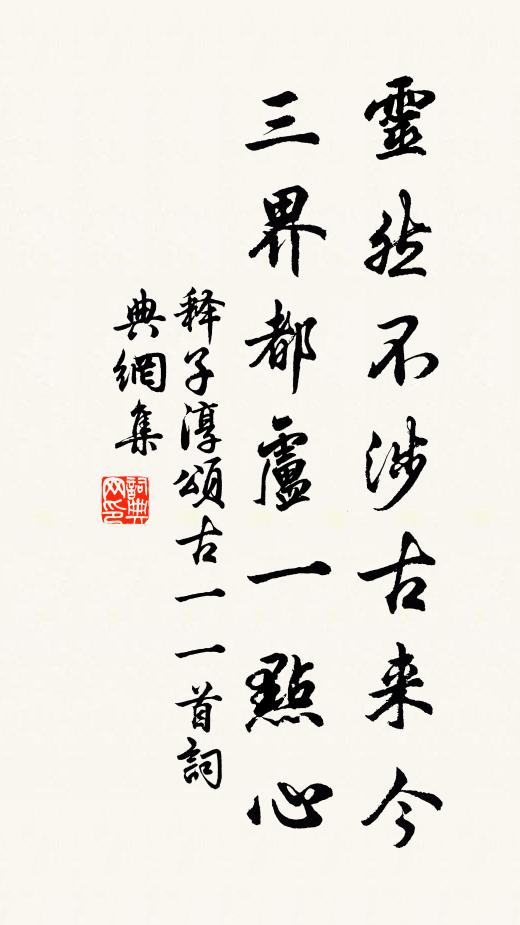 靈然不涉古来今
三界都盧一點心
释子淳頌古一一首詞
典網集
詞典网印